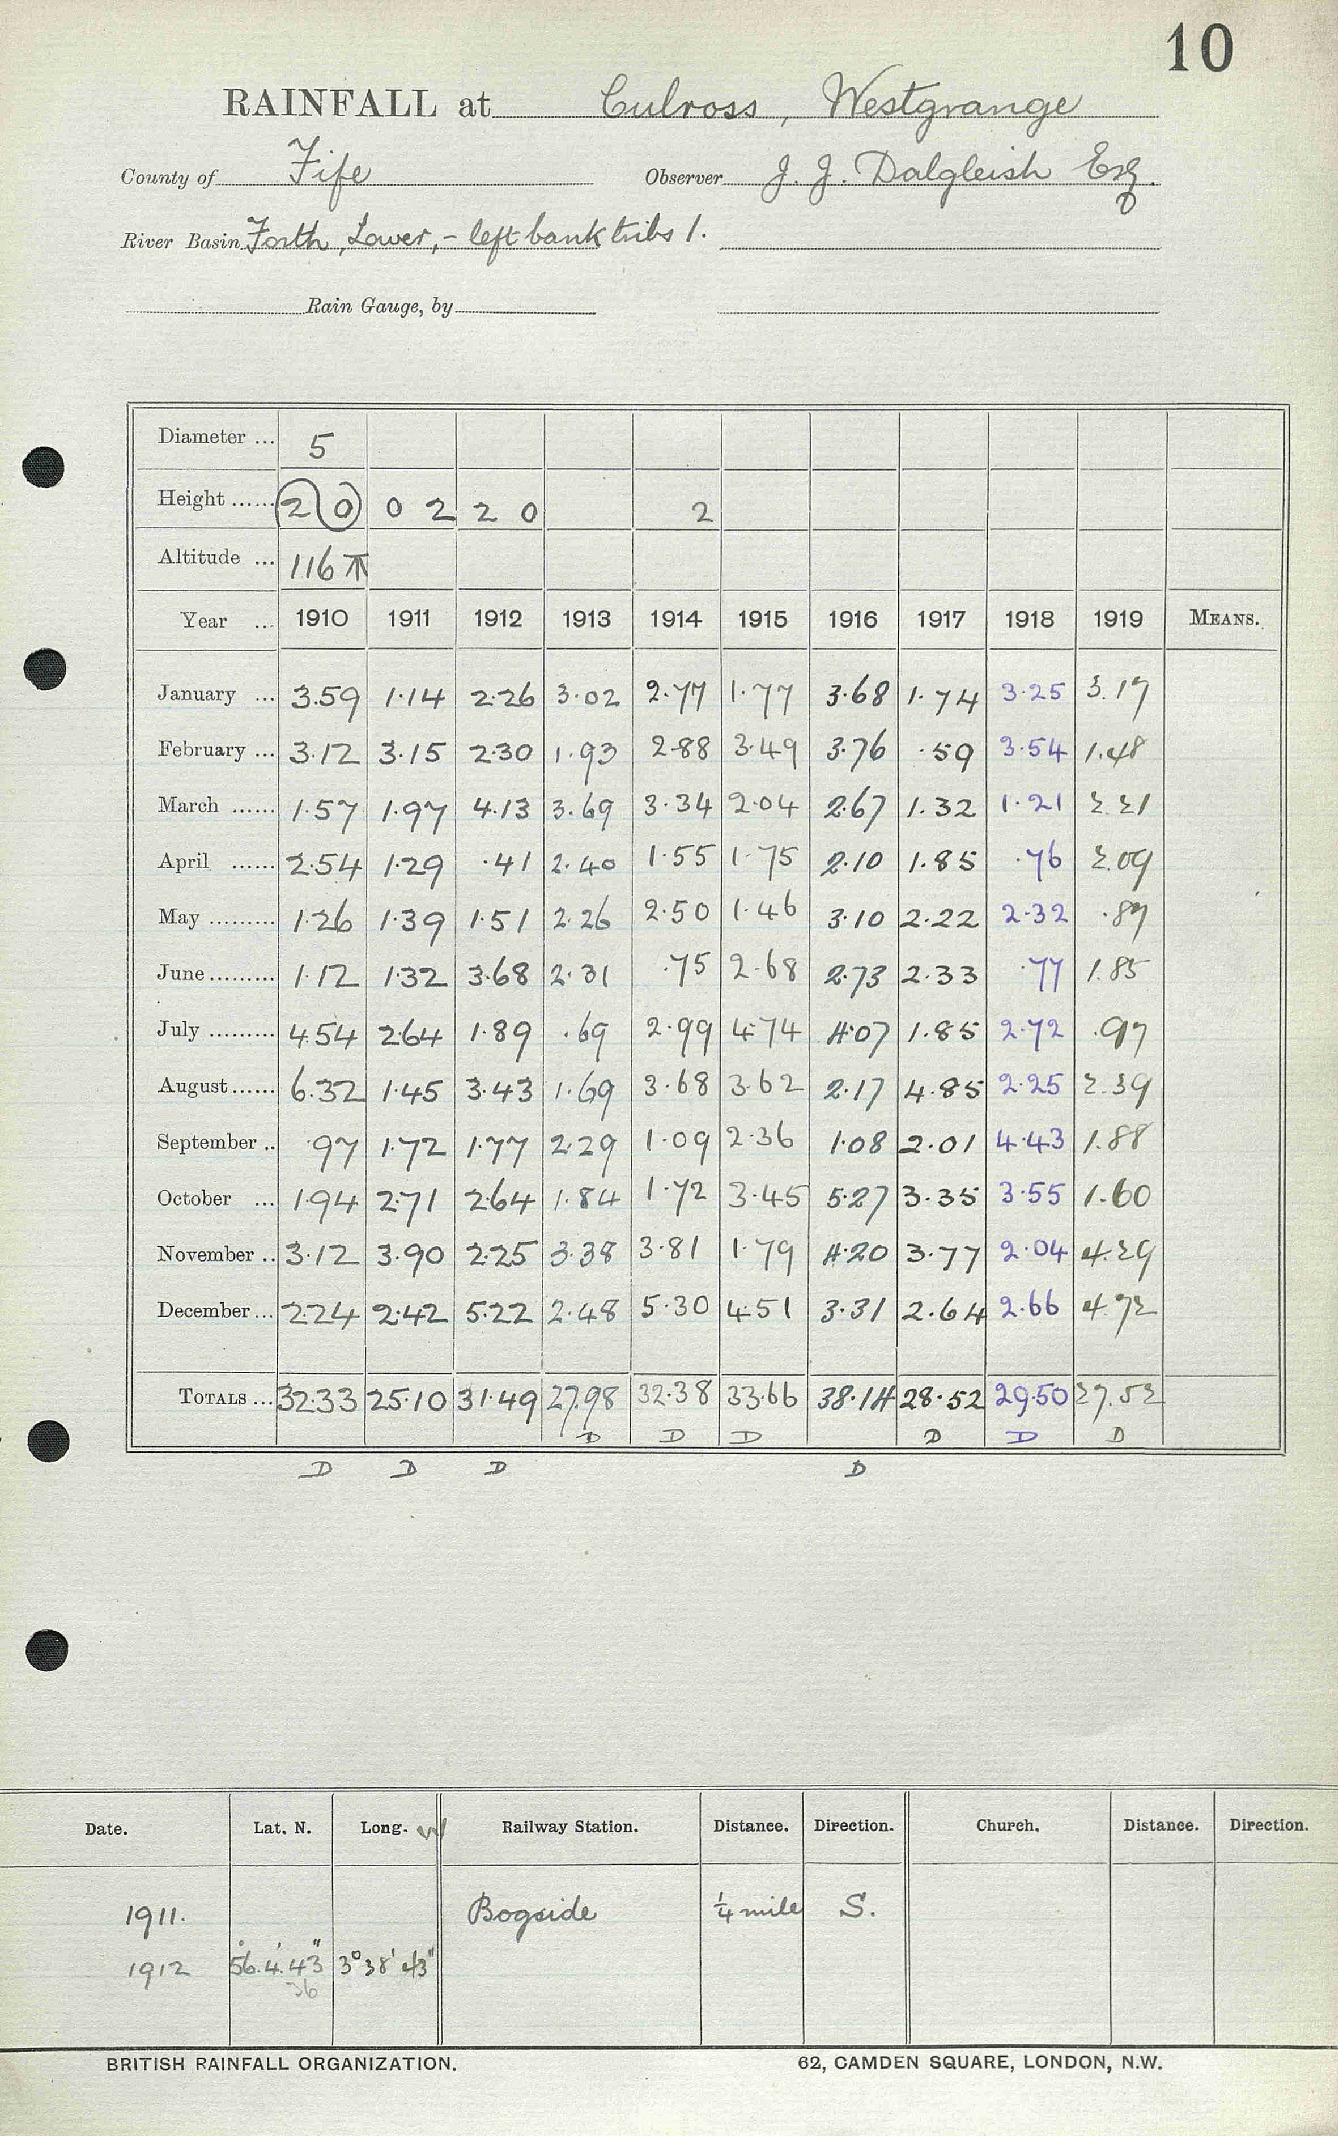 10
RAINFALL at Culross, Westgrange
County of Fife Observer J. J. Dalgleish Esq.
River Basin Forth, Lower, - left bank tribs 1.
Rain Gauge, by
Diameter ... 5
Height ...... 2 0 0 2 2 0 2
Altitude ... 116
Year ... 1910 1911 1912 1913 1914 1915 1916 1917 1918 1919 MEANS.
January ... 3.59 1.14 2.26 3.02 2.77 1.77 3.68 1.74 3.25 3.17
February ... 3.12 3.15 2.30 1.93 2.88 3.49 3.76 .59 3.54 1.48
March ...... 1.57 1.97 4.13 3.69 3.34 2.04 2.67 1.32 1.21 2.21
April ...... 2.54 1.29 .41 2.40 1.55 1.75 2.10 1.85 .76 2.09
May ......... 1.26 1.39 1.51 2.26 2.50 1.46 3.10 2.22 2.32 .87
June ......... 1.12 1.32 3.68 2.31 .75 2.68 2.73 2.33 .77 1.85
July ......... 4.54 2.64 1.89 .69 2.99 4.74 4.07 1.85 2.72 .97
August ...... 6.32 1.45 3.43 1.69 3.68 3.62 2.17 4.85 2.25 2.39
September .. .97 1.72 1.77 2.29 1.09 2.36 1.08 2.01 4.43 1.88
October ... 1.94 2.71 2.64 1.84 1.72 3.45 5.27 3.35 3.55 1.60
November .. 3.12 3.90 2.25 3.38 3.81 1.79 4.20 3.77 2.04 4.29
December ... 2.24 2.42 5.22 2.48 5.30 4.51 3.31 2.64 2.66 4.72
TOTALS ... 32.33 25.10 31.49 27.98 32.38 33.66 38.14 28.52 29.50 27.52
D D D D D D
D D D D
Date. Lat. N. Long. W Railway Station. Distance. Direction. Church. Distance. Direction.
1911. Bogside ¼ mile S.
1912 56° 4' 43" 3° 38' 43"
36
BRITISH RAINFALL ORGANIZATION. 62, CAMDEN SQUARE, LONDON, N.W.